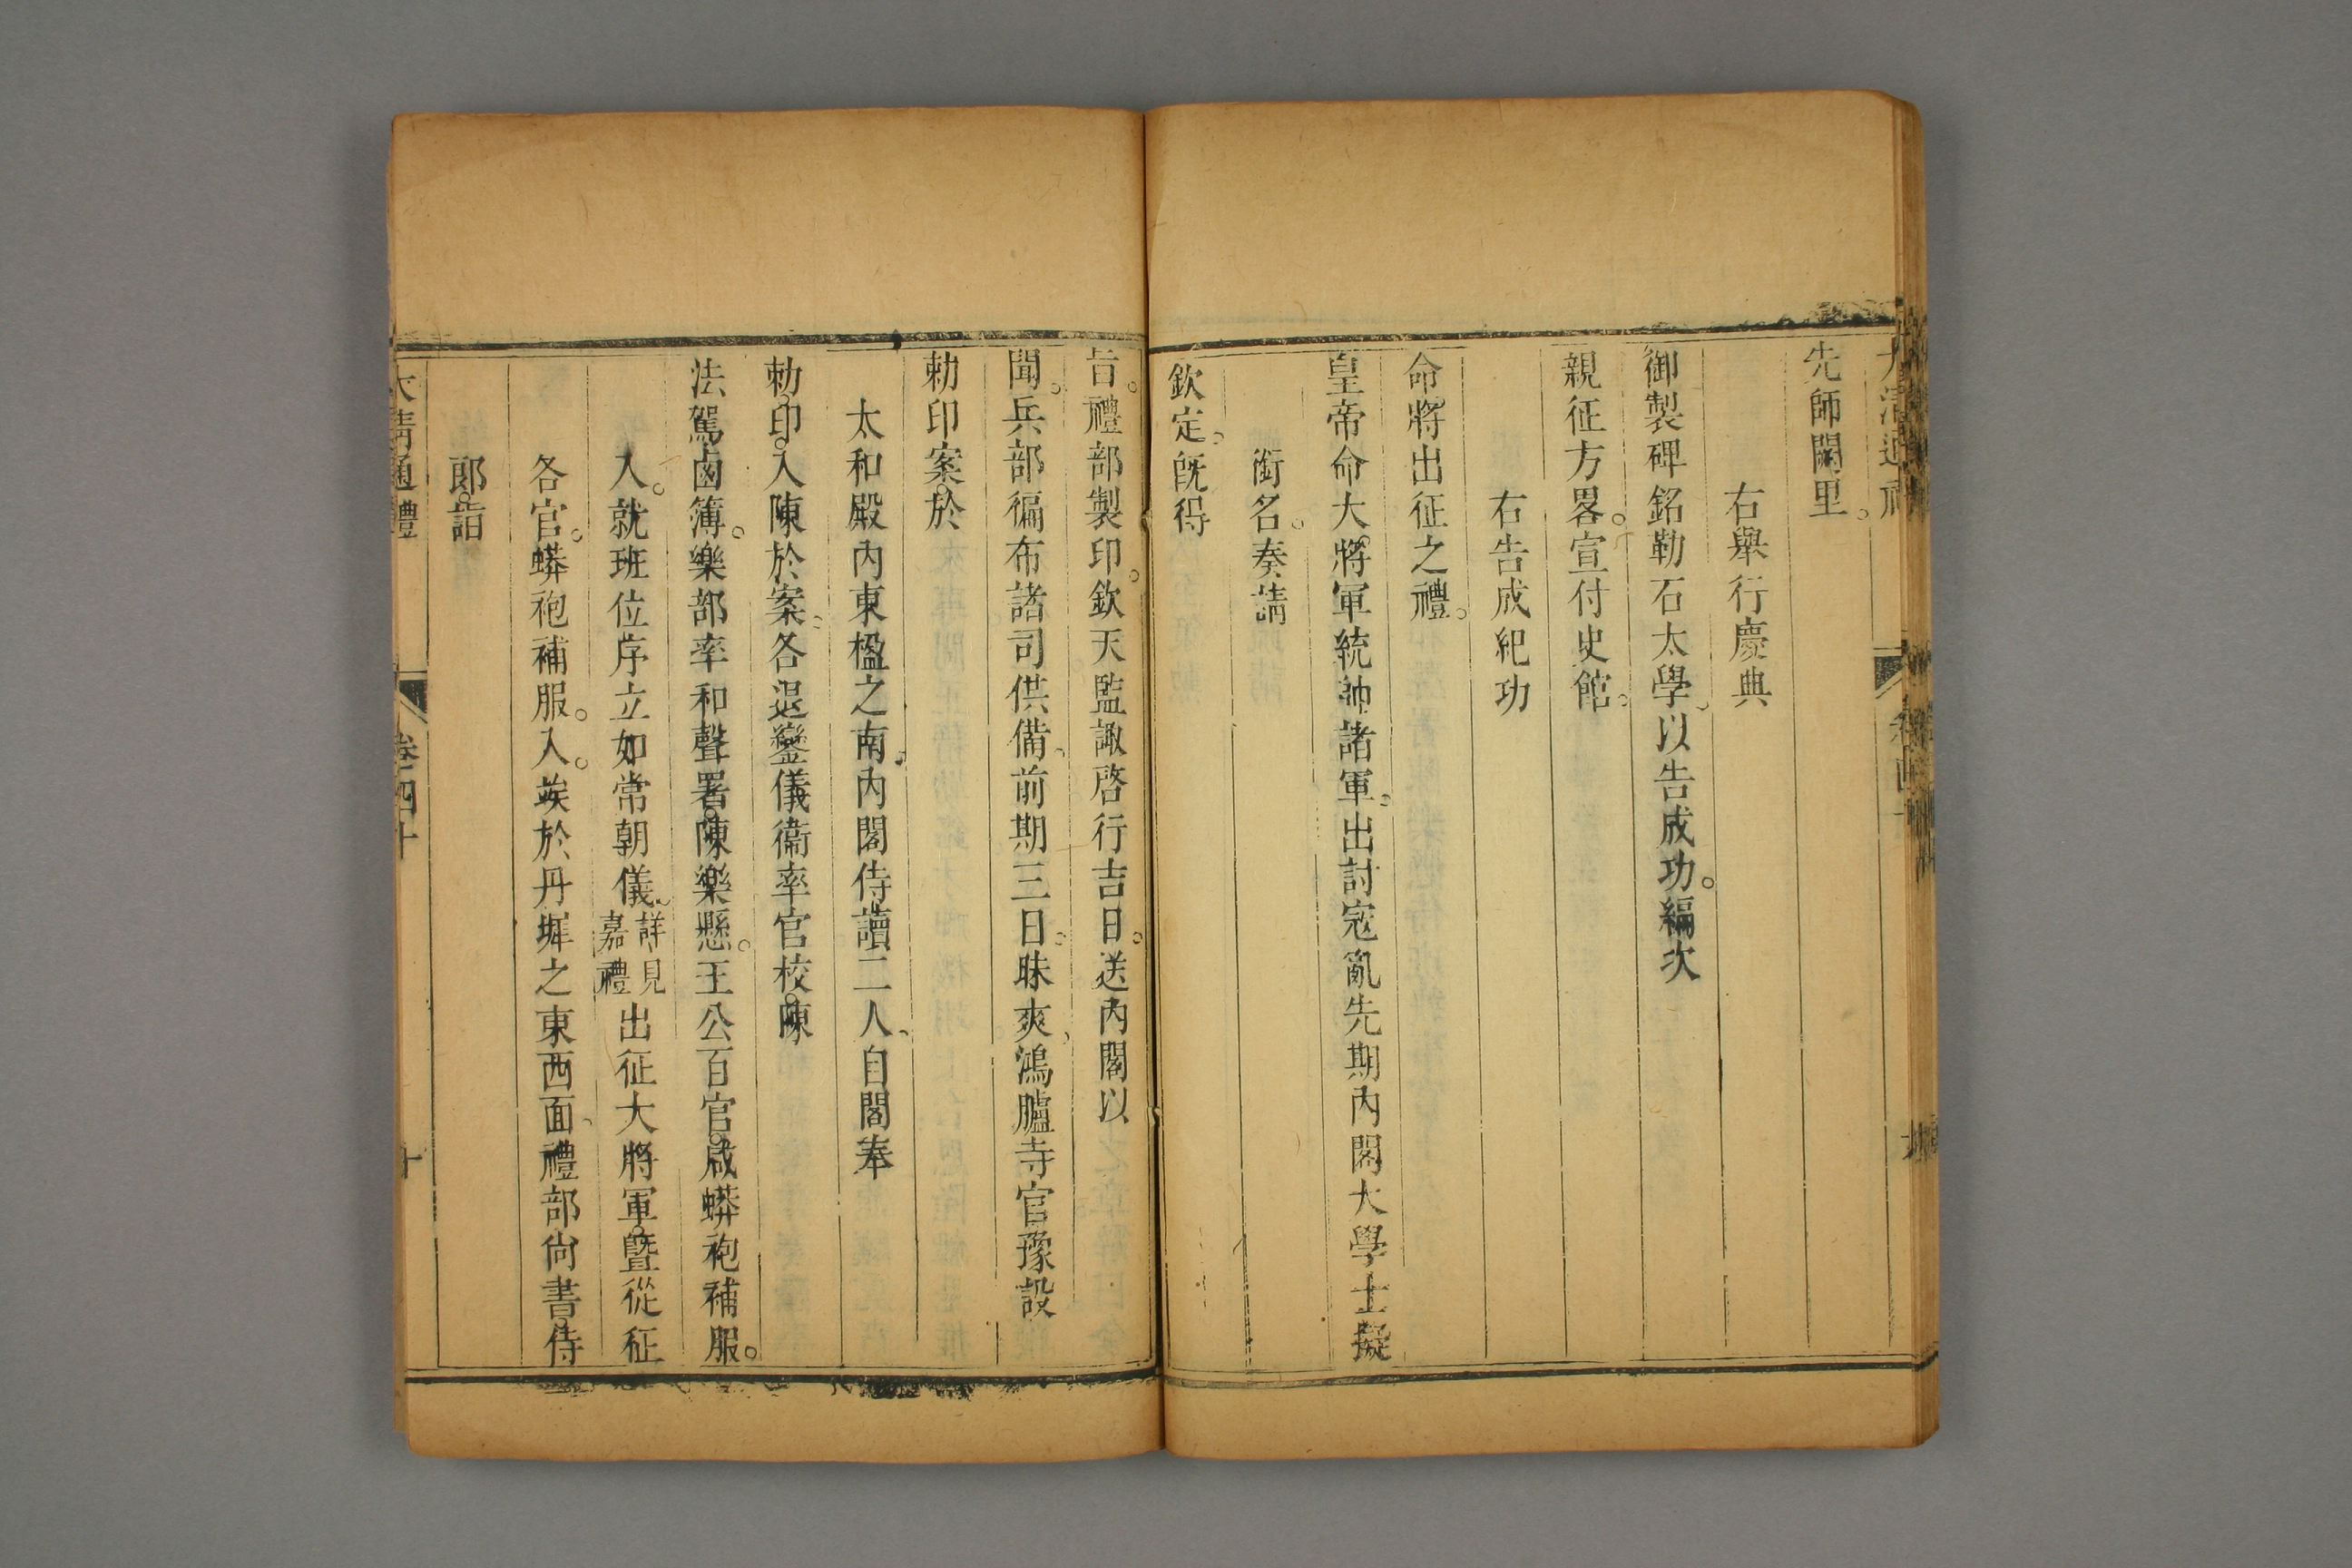 大清通禮 卷四十 九
先師闕里。
右舉行慶典
御製碑銘勒石太學。以告成功。編次
親征方畧。宣付史館。
右告成紀功
命將出征之禮。
皇帝命大將軍統帥諸軍。出討寇亂先期內閣大學士擬
銜名。奏請
欽定。旣得
旨。禮部製印。欽天監諏啓行吉日。送內閣以
聞。兵部徧布諸司供備。前期三日。昧爽。鴻臚寺官豫設
勅印案。於
太和殿內東楹之南。內閣侍讀二人。自閣奉
勅。印。入陳於案。各退鑾儀衞率官校。陳
法駕鹵簿。樂部率和聲署。陳樂懸。王公百官。咸蟒袍補服。
入。就班位序立如常朝儀。詳見嘉禮出征大將軍。暨從征
各官。蟒袍補服。入。竢於丹墀之東西面。禮部尙書。侍
郞。詣
大清通禮 卷四十 十